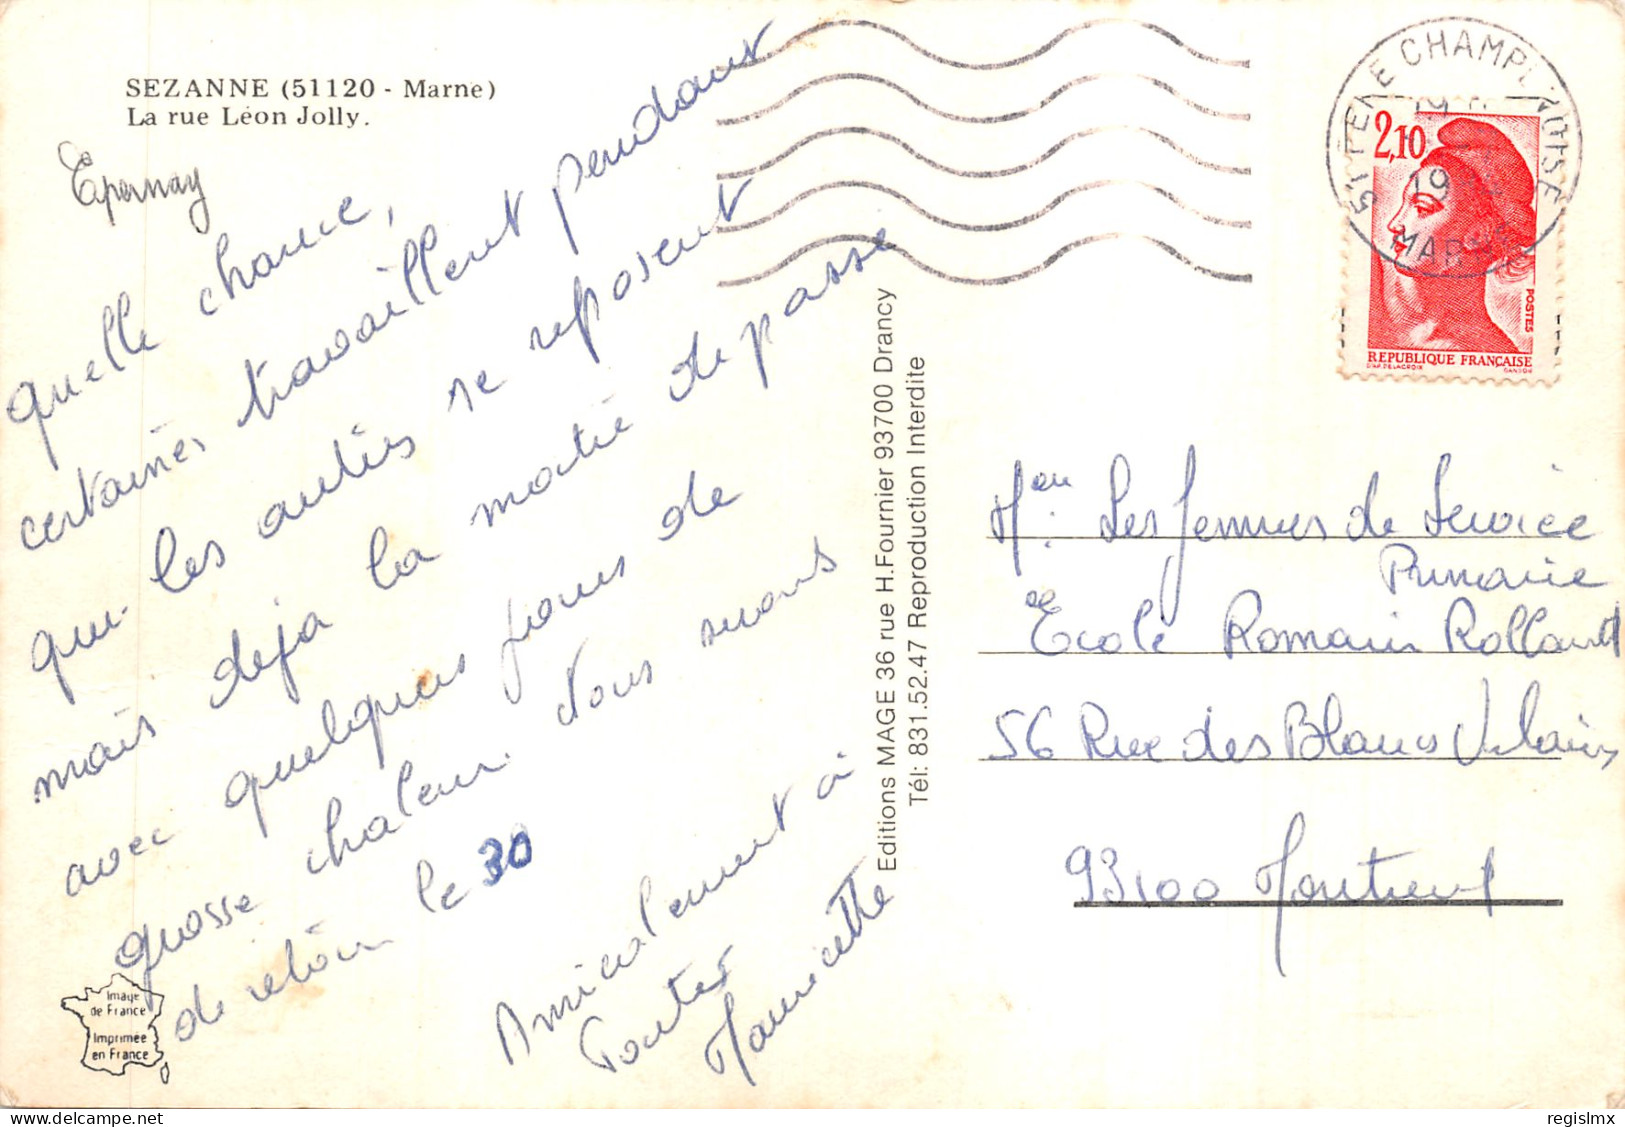 SEZANNE (51120 - Marne)
La rue Léon Jolly.
Epernay
quelle chance,
certaines travaillent pendant
que les autres se reposent
mais deja la moitié de passe
avec quelques jours de
grosse chaleur. Nous serons
de retour le 30
Amicalement à
Toutes
Mauricette
Image
de France
Imprimée
en France
Editions MAGE 36 rue H.Fournier 93700 Drancy
Tél: 831.52.47 Reproduction Interdite
MARNE
19
2,10
POSTES
REPUBLIQUE FRANÇAISE
D'AP. DELACROIX
GANDON
Les femmes de Service
Primaire
Ecole Romain Rolland
56 Rue des Blancs Vilains
93100 Montreuil
regislmx